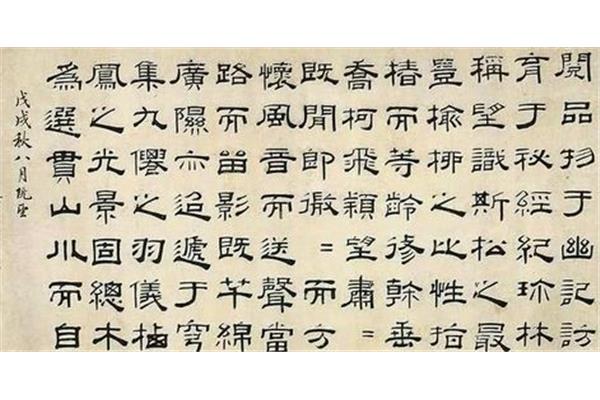 閱品物于幽記訪
育于秘經紀珎林
稱識斯松之最
豈揄之比性指
椿而等齡修幹垂
喬柯飛穎望肅=
既聞即徹=而方
懷風音而送聲當
路而留影既芊綿
廣隰亦迢遞于穹
集九僊之羽儀栖
鳳之光景固總木
為選貫山川而自
戊戌秋八月